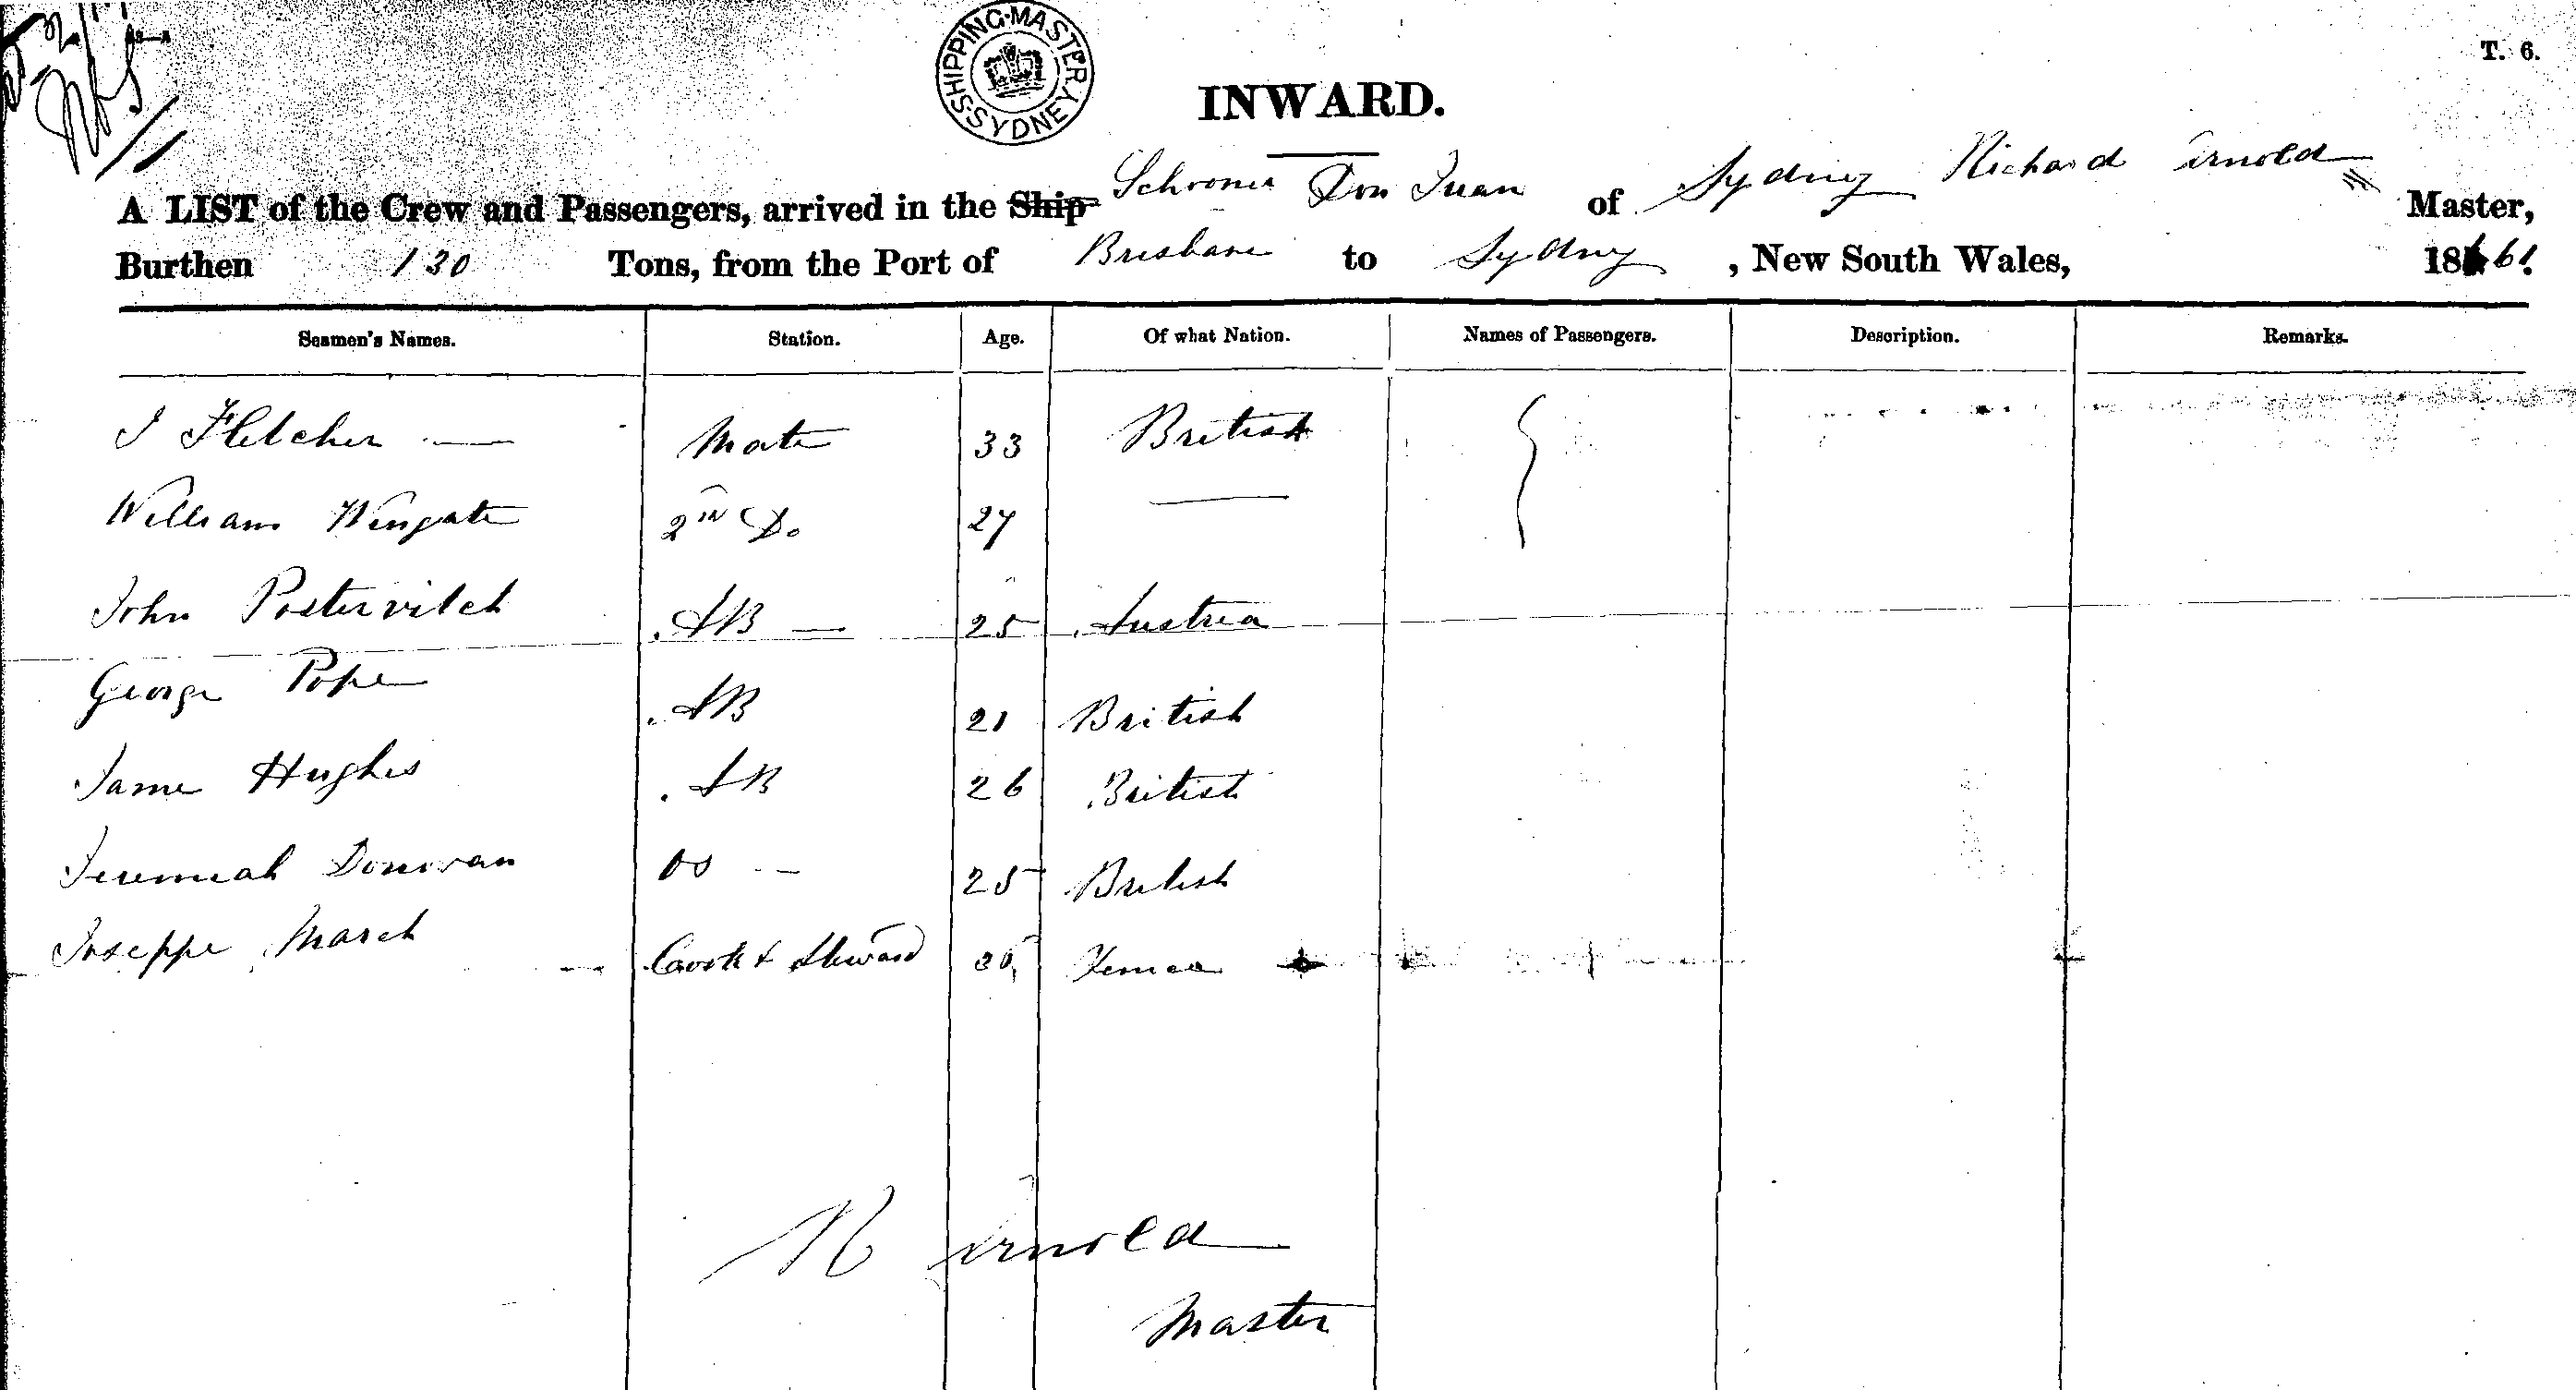 SHIPPING·MASTER·SYDNEY·
T. 6.
INWARD.
A LIST of the Crew and Passengers, arrived in the Ship Schooner Don Juan of Sydney Richard Arnold Master,
Burthen 130 Tons, from the Port of Brisbane to Sydney, New South Wales, 1861.
Seamen's Names. Station. Age. Of what Nation. Names of Passengers. Description. Remarks.
J Fletcher — Mate 33 British
William Wingate 2nd Do 27 —
John Postervitch AB — 25 Austria
George Pope AB 21 British
Jame Hughes AB 26 British
Jeremiah Donovan OS — 25 British
Joseppe March Cook & Steward
R Arnold
Master